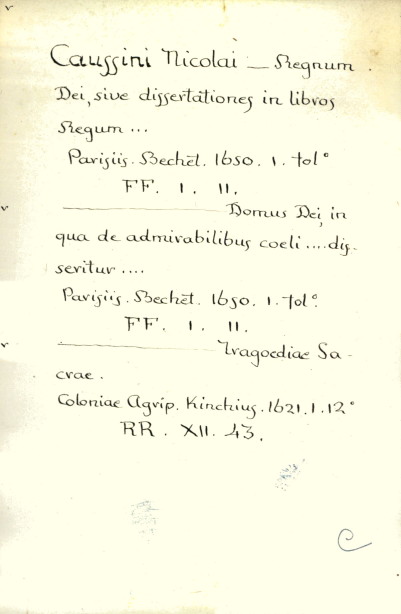 Caussini Nicolai — Regnum.
Dei, sive dissertationes in libros
Regum ...
Parisiis. Bechët. 1650. 1. fol°
FF. I. II.
Domus Dei, in
qua de admirabilibus coeli .... dis-
seritur ....
Parisiis. Bechet. 1650. 1. fol°.
FF. I. II.
Tragoediae Sa-
crae.
Coloniae Agrip. Kinchius. 1621. 1. 12°
RR. XII. 43.
C